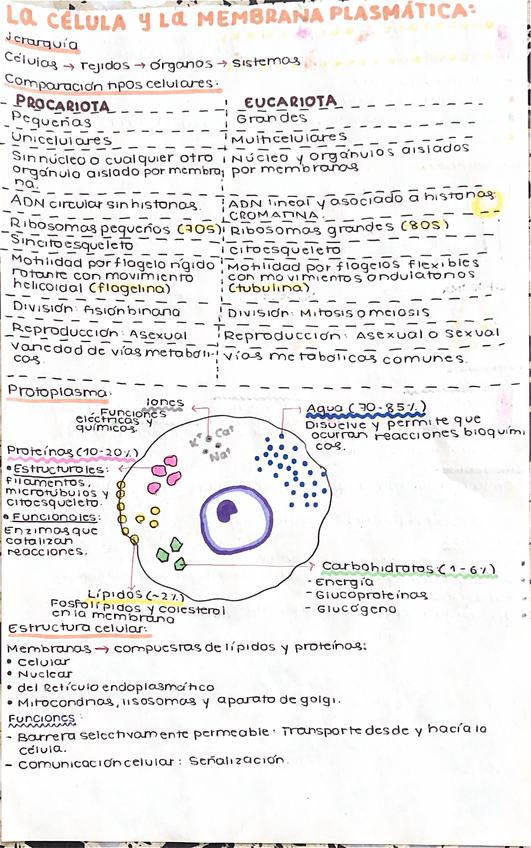 LA CÉLULA Y LA MEMBRANA PLASMÁTICA:
Jerarquía
Células → Tejidos → órganos → sistemas
Comparación tipos celulares:
PROCARIOTA
Pequeñas
Unicelulares
Sin núcleo o cualquier otro
orgánulo aislado por membra
na.
ADN circular sin histonas.
Ribosomas pequeños (70S)
Sin citoesqueleto
Motilidad por flagelo rígido
rotante con movimiento
helicoidal (flagelina)
División: Fisión binaria
Reproducción: Asexual
Variedad de vías metabóli-
cas.
EUCARIOTA
Grandes
Multicelulares
Núcleo y orgánulos aislados
por membranas
ADN lineal y asociado a histonas.
CROMATINA.
Ribosomas grandes (80S)
citoesqueleto
Motilidad por flagelos flexibles
con movimientos ondulatorios
(tubulina)
División: Mitosis o meiosis
Reproducción: Asexual o Sexual
vías metabólicas comunes.
Protoplasma:
iones
Funciones
eléctricas y
químicos.
K+ Ca+
Na+
Agua (70-85%)
Disuelve y permite que
ocurran reacciones bioquími
cas.
Proteínas (10-20%)
• Estructurales:
filamentos,
microtúbulos y
citoesqueleto.
• Funcionales:
Enzimas que
catalizan
reacciones.
Lípidos (~2%)
Fosfolípidos y colesterol
en la membrana
Carbohidratos (1-6%)
- Energía
- Glucoproteínas
- Glucógeno
Estructura celular:
Membranas → compuestas de lípidos y proteínas:
• Celular
• Nuclear
• del Retículo endoplasmático
• Mitocondrias, lisosomas y aparato de golgi.
Funciones:
- Barrera selectivamente permeable: Transporte desde y hacía la
célula.
- Comunicación celular: Señalización.